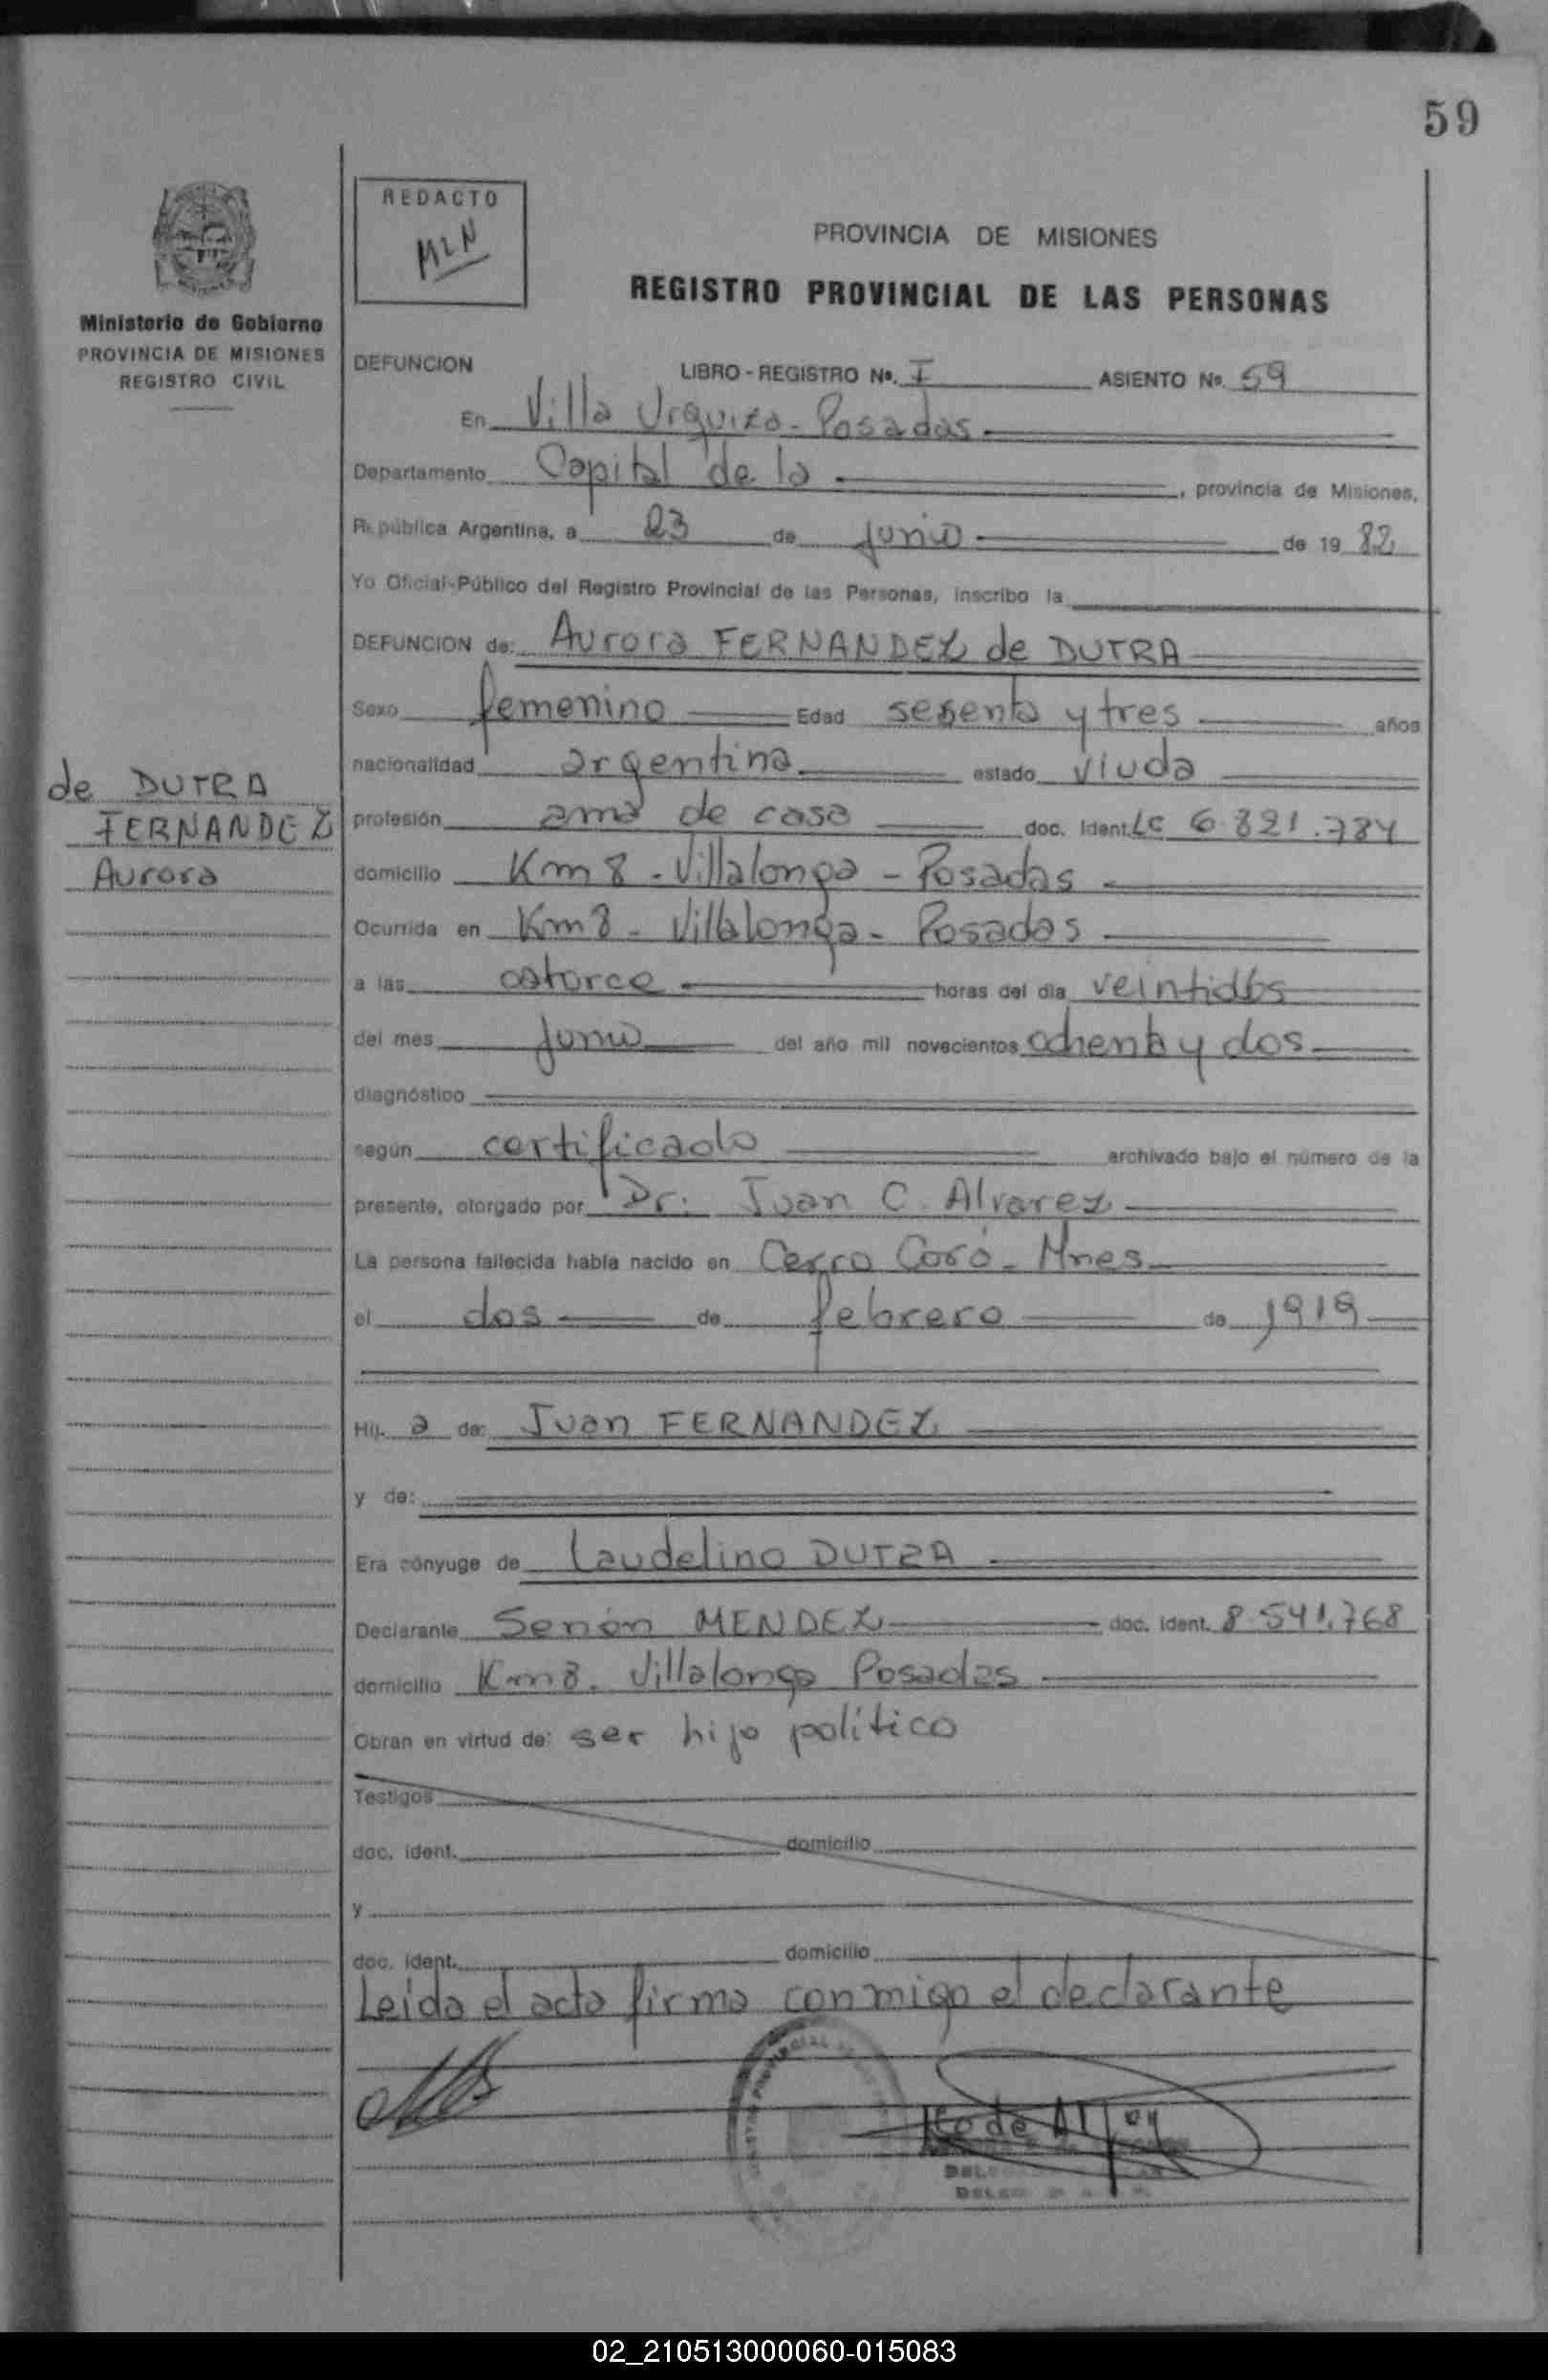 59
REDACTO
MLN
PROVINCIA DE MISIONES
REGISTRO PROVINCIAL DE LAS PERSONAS
Ministerio de Gobierno
PROVINCIA DE MISIONES
REGISTRO CIVIL
DEFUNCION LIBRO - REGISTRO Nº. I ASIENTO Nº. 59
En Villa Urquiza - Posadas
Departamento Capital de la , provincia de Misiones,
República Argentina, a 23 de junio de 19 82
Yo Oficial Público del Registro Provincial de las Personas, inscribo la
DEFUNCION de: Aurora FERNANDEZ de DUTRA
Sexo femenino Edad sesenta y tres años
nacionalidad argentina estado viuda
de DUTRA
FERNANDEZ
Aurora
profesión ama de casa doc. Ident. LC 6.821.784
domicilio Km 8 - Villalonga - Posadas
Ocurrida en Km 8 - Villalonga - Posadas
a las catorce horas del día veintidós
del mes junio del año mil novecientos ochenta y dos
diagnóstico
según certificado archivado bajo el número de la
presente, otorgado por Dr. Juan C. Alvarez
La persona fallecida había nacido en Cerro Corá - Mnes
el dos de febrero de 1919
Hij. a de: Juan FERNANDEZ
y de:
Era cónyuge de Laudelino DUTRA
Declarante Senón MENDEZ doc. Ident. 8.541.768
domicilio Km 8. Villalonga Posadas
Obran en virtud de: ser hijo político
Testigos
doc. ident. domicilio
y
doc. ident. domicilio
Leida el acta firma conmigo el declarante
02_210513000060-015083